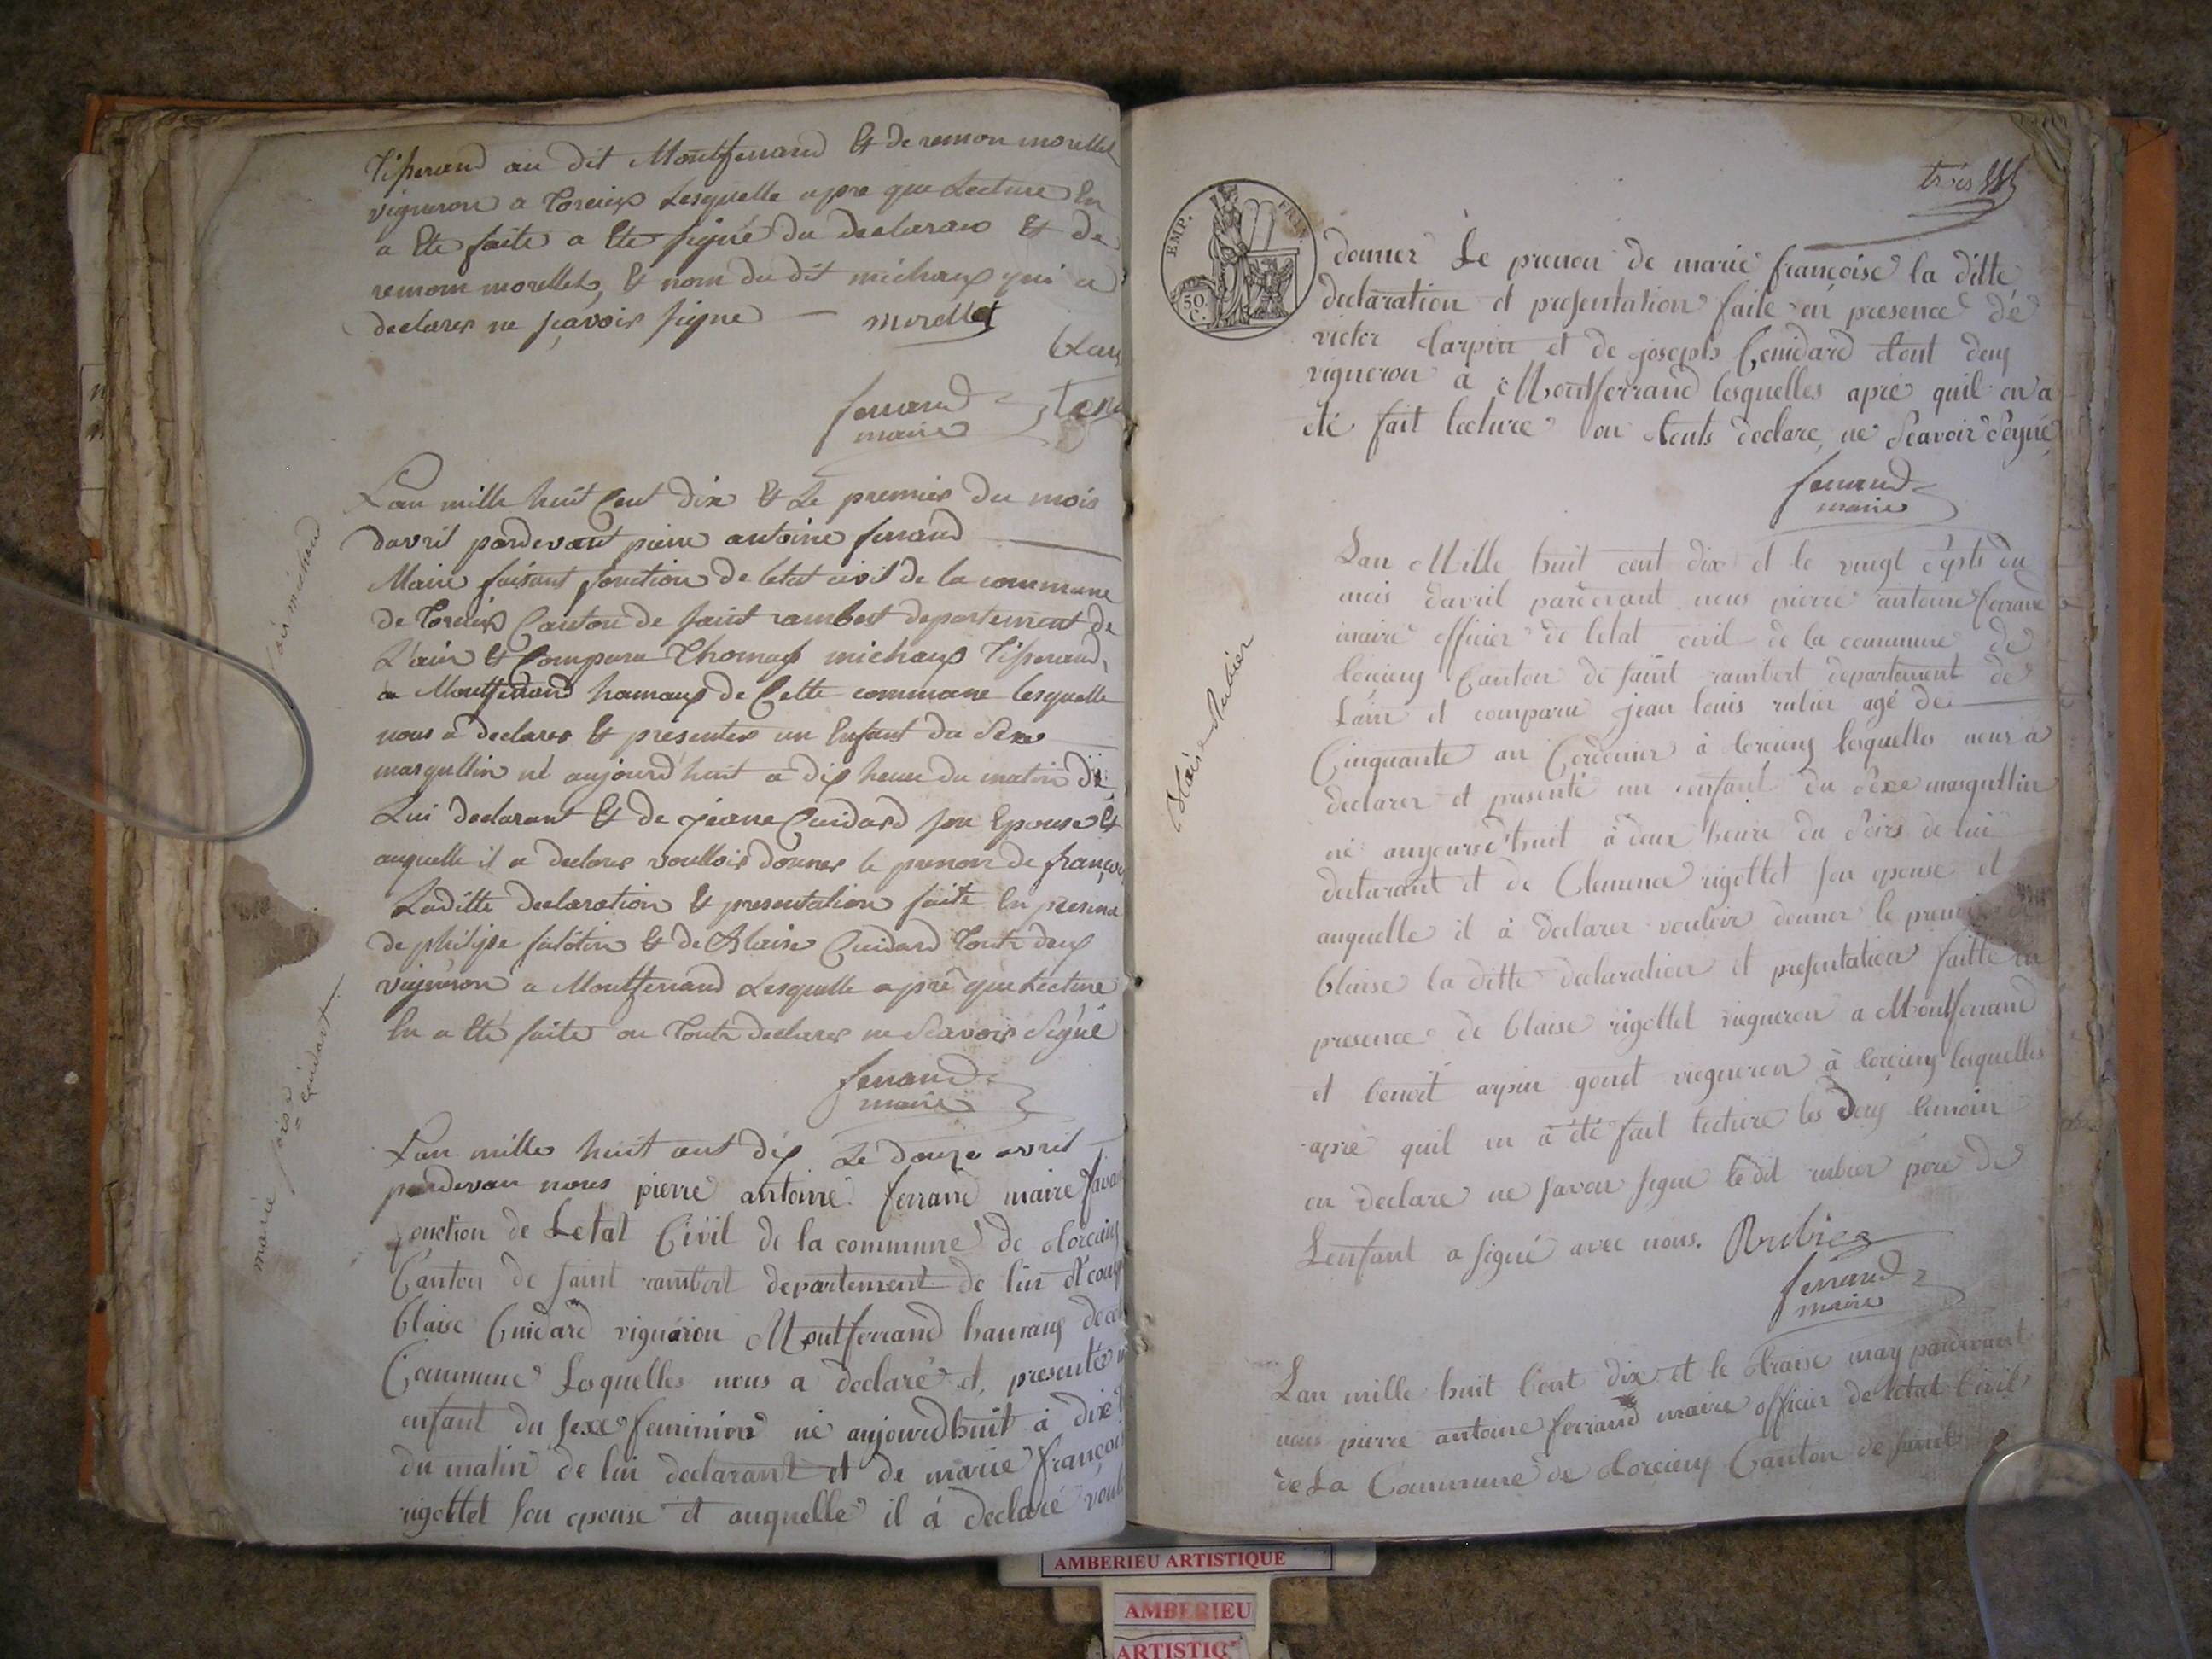 Tisserand au dit Montferrand & de remon morellet
vigneron a Torcieux Lesquelle apre que Lecture En
a Ete faite a Ete signé du declaran & de
remon morellet, & nom du dit michaux qui a
declarer ne sçavoir signe — morellet
ferrand
maire
Lan mille huit Cent dix & Le premier du mois
davril pardevant pierre antoine ferrand
Maire faisant fonction de letat civil de la commune
de Torcieux Canton de saint rambert departement de
L'ain & Comparu Thomas michaux Tisserand,
a Montferrand hamaux de Cette commune lesquelle
nous a declarer & presenter un Enfant du Sexe
masqullin né aujourd'huit a dix heure du matin de
Lui declarant & de jeane Cuidard son Epouse &
auquelle il a declarer voulloir donner le prenon de françois
Laditte declaration & presentation faite En presence
de philipe & de Blaise Cuidard Toute deux
vigneron a Montferrand Lesquelle apré que Lecture
En a Eté faite on Toute declarer ne Scavoir Signé
ferrand
maire
marie
cuidart
Lan mille huit cent dix Le douze avril
pardevan nous pierre antoine ferrand maire
fonction de Letat Civil de la commune de torcieux
Canton de saint rambert departement de lin et
blaise Cuidard vigneron Montferrand hamaux
Commune Lesquelles nous a declaré et presenté
enfant du sexe feminion né aujourdhuit à dix
du matin de lui declarant et de marie françoise
rigottet son epouse et auquelle il á declaré
trois
EMP. FRAN.
50
C.
donner Le prenon de marie françoise la ditte
declaration et presentation faite en presence de
victor tarpin et de joseph Cuidard tout deux
vigneron à Montferrand lesquelles apré quil en a
eté fait lecture on touts declare, ne Scavoir Seigné
ferrand
maire
Blaise Rubier
Lan Mille huit cent dix et le vingt septs du
mois davril pardevant nous pierre antoine ferrand
maire officier de letat civil de la commune de
torcieux Canton de saint rambert departement de
Lain et comparu jean louis rubier agé de
Cinquante an Cordonier à torcieux lesquelles nous à
declarer et presenté un enfant du sexe masqullin
né aujourd'huit à deux heure du soirs de lui
declarant et de Clemence rigottet son epouse et
auquelle il à declarer vouloir donner le prenon
blaise la ditte declaration et presentation faitte en
presence de blaise rigottet viegneron a Montferrand
et benoit arpin gonet viegneron à torcieux lesquelles
apré quil en à été fait lecture les deux temoin
on declare ne savoir signe le dit rubier pere de
Lenfant a signé avec nous. Rubier
ferrand
maire
Lan mille huit Cent dix et le traise may pardevant
nous pierre antoine ferrand maire officier de letat Civil
de La Commune de torcieux Canton de saint
AMBERIEU ARTISTIQUE
AMBERIEU
ARTISTIQ